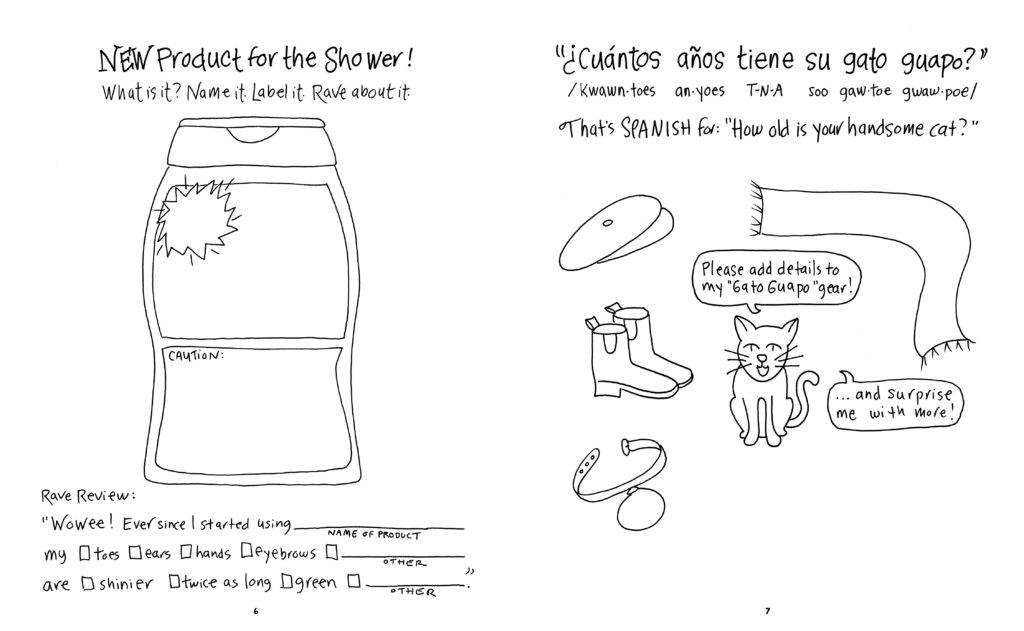 NEW Product for the Shower!
What is it? Name it. Label it. Rave about it.
CAUTION:
Rave Review:
"Wowee! Ever since I started using
NAME OF PRODUCT
my toes ears hands eyebrows
OTHER
are shinier twice as long green .”
OTHER
6
"¿Cuántos años tiene su gato guapo?"
/Kwawn·toes an·yoes T-N-A soo gaw·toe gwaw·poe/
That's SPANISH for: "How old is your handsome cat?"
Please add details to
my "Gato Guapo" gear!
...and surprise
me with more!
7